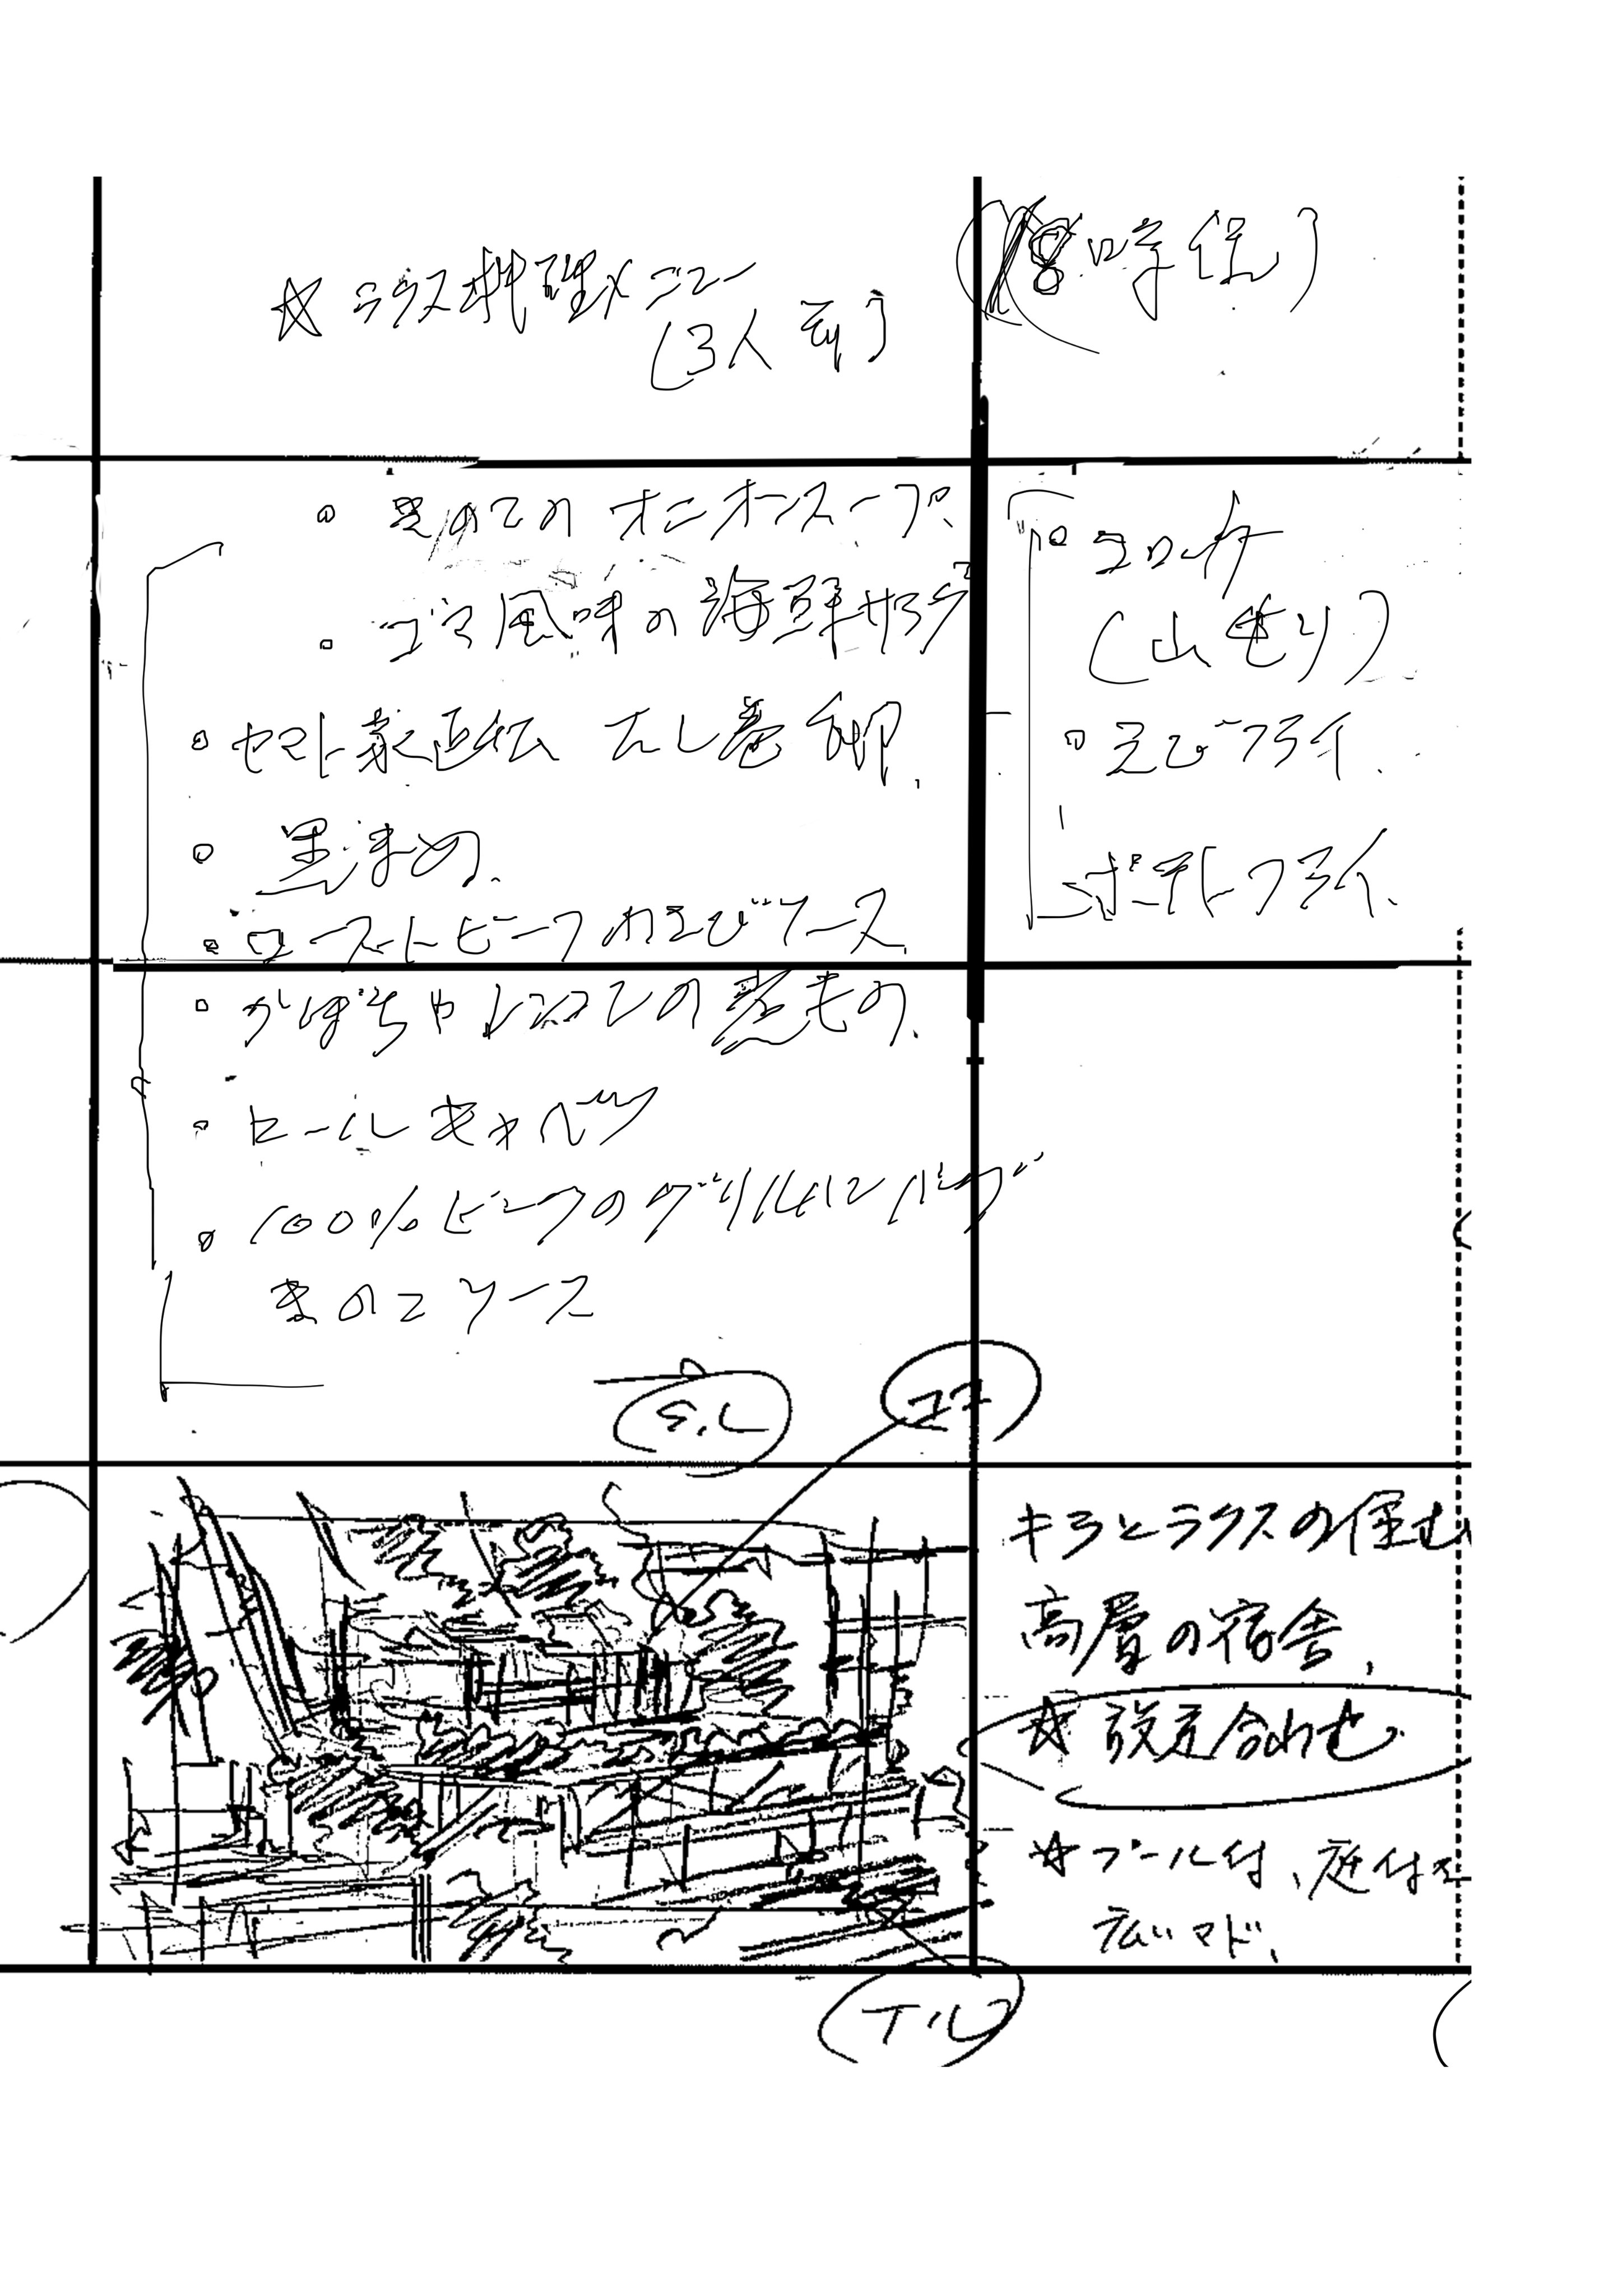 ☆ ラクス料理メニュー
(3人前)
(8時位)
。きのこのオニオンスープ、
。ゴマ風味の海鮮サラダ
。ヤマト家直伝 だし巻卵、
。黒豆
。ローストビーフ わさびソース、
。かぼちゃ レンコンの煮もの、
。ロールキャベツ
。100%ビーフのグリルハンバーグ
きのこソース
。コロッケ
(山もり)
。えびフライ、
ポテトフライ、
キラとラクスの住む
高層の宿舎、
☆ 設定合わせ
☆ プール付、庭付き
広いマド、